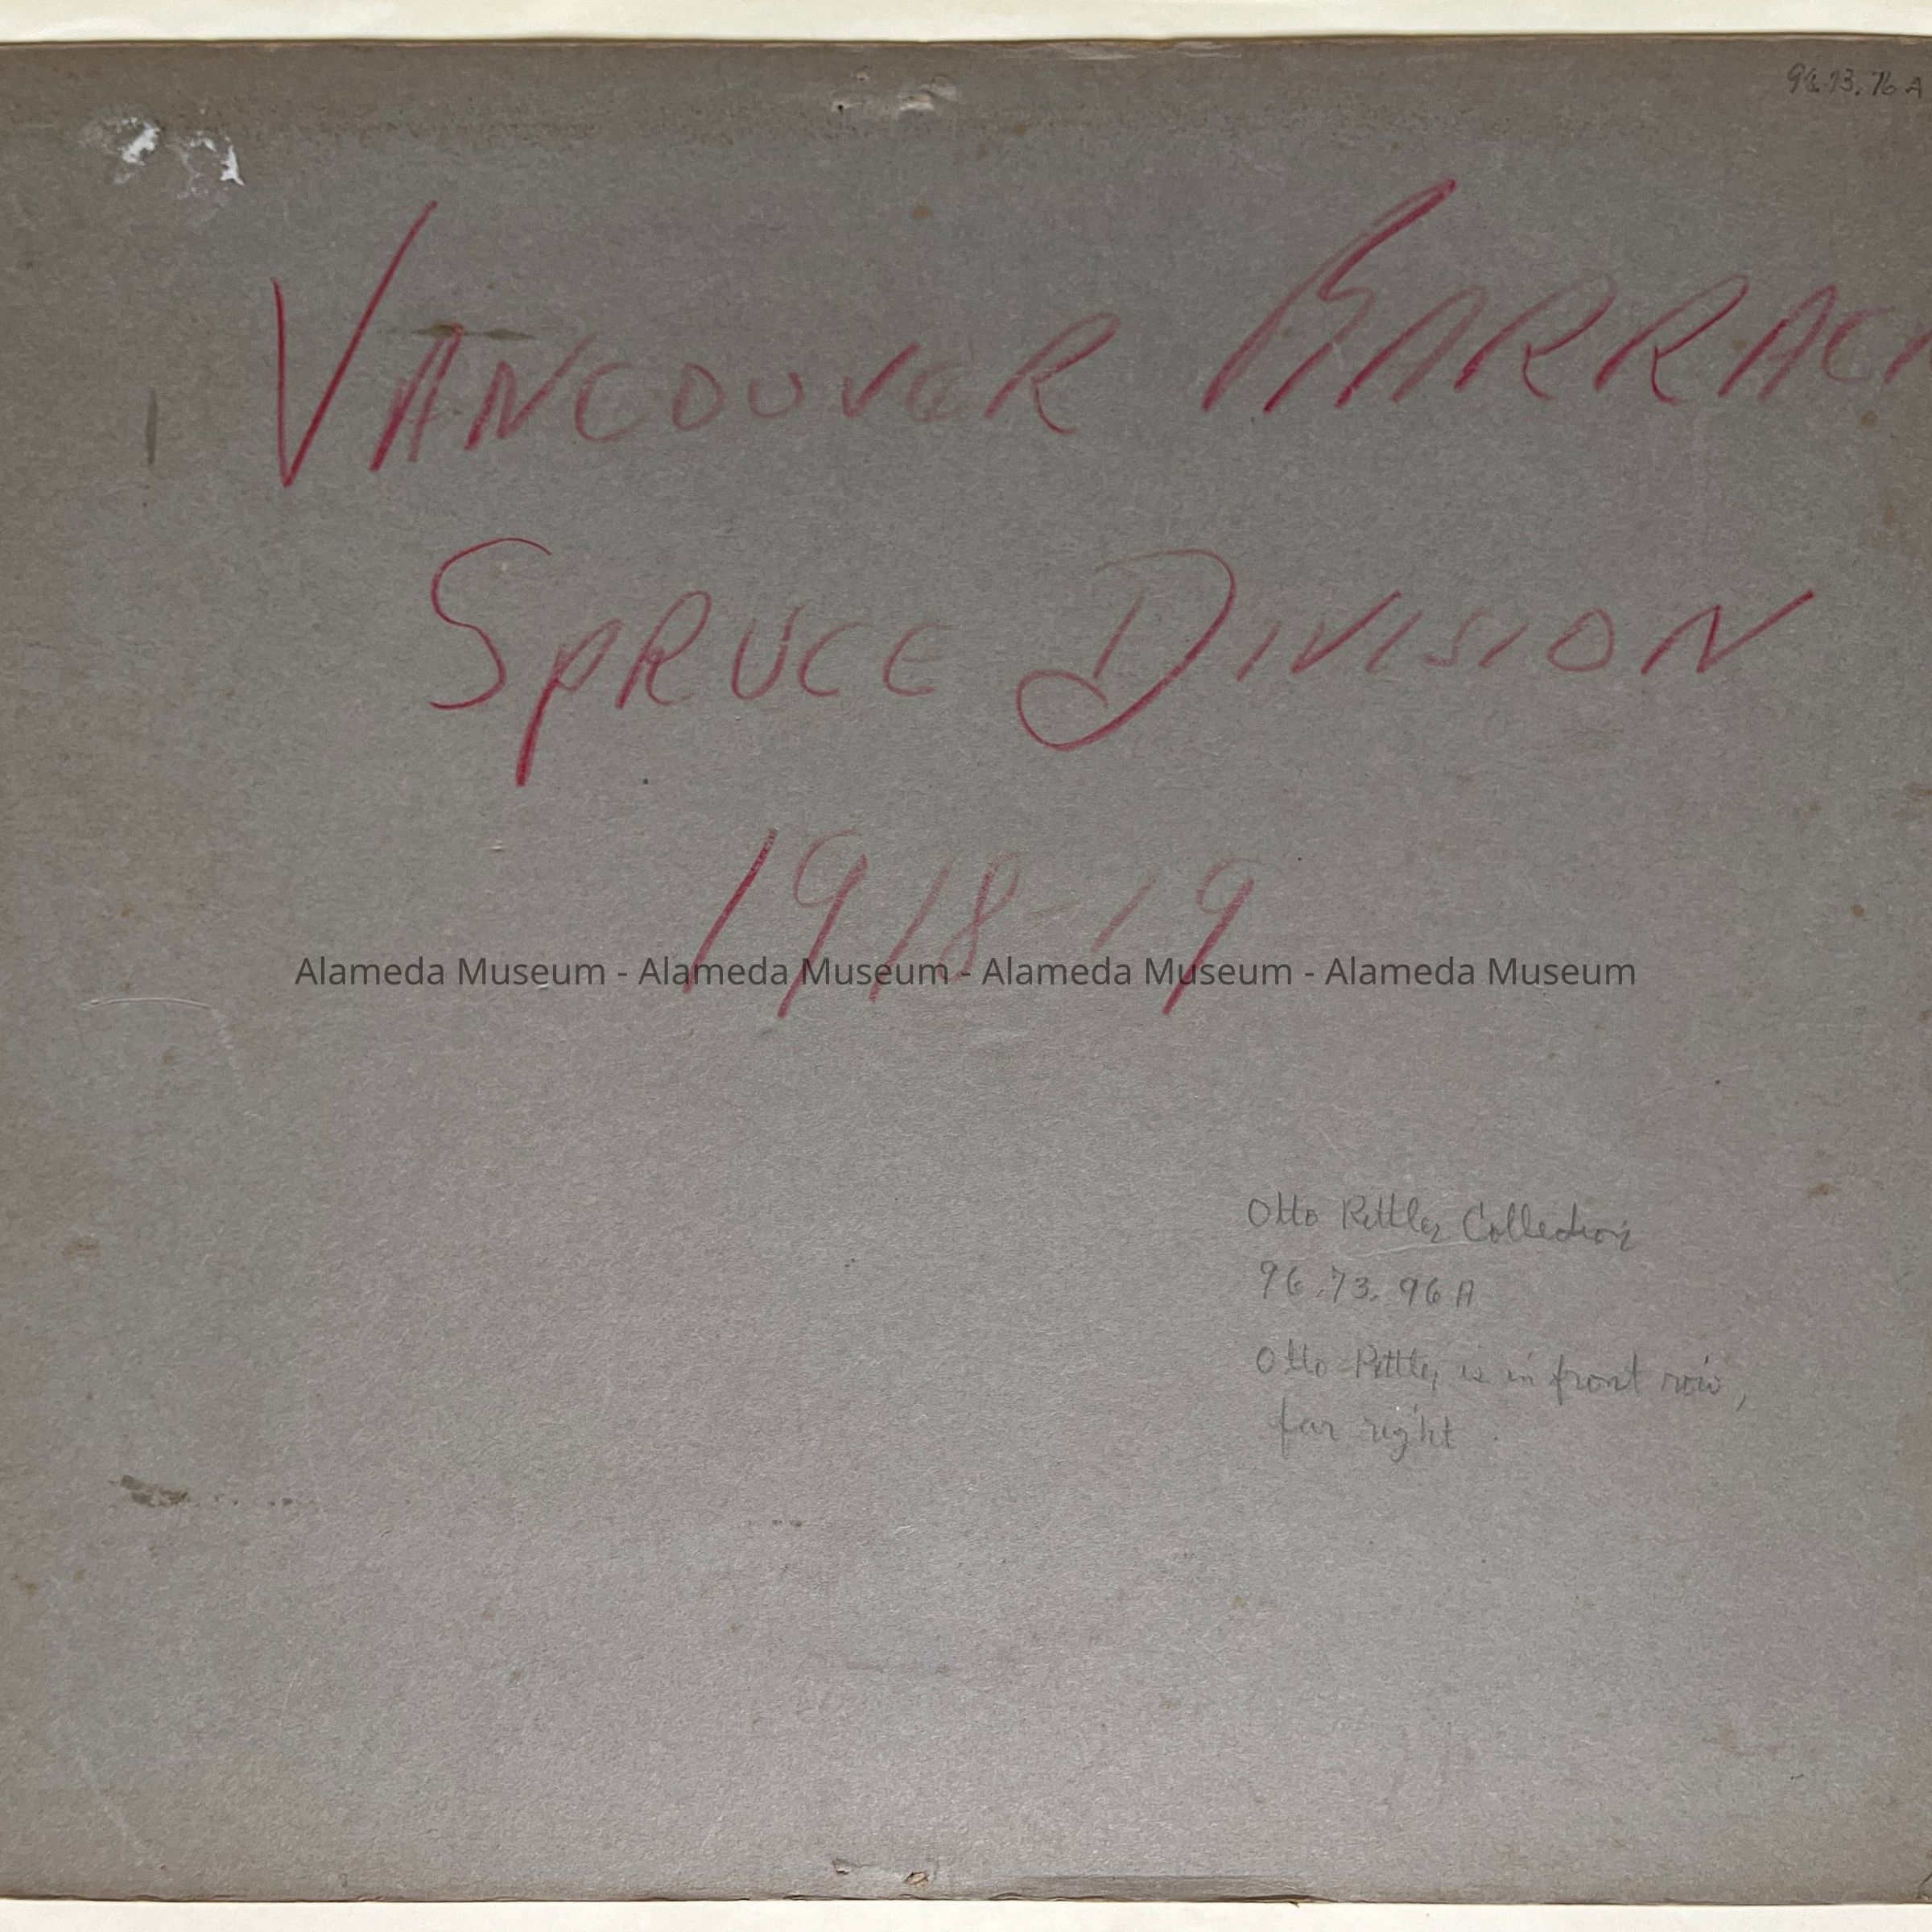 96.73.76 A
VANCOUVER BARRACK
SPRUCE DIVISION
1918-19
Alameda Museum - Alameda Museum - Alameda Museum - Alameda Museum
Otto Rittler Collection
96.73.96 A
Otto Rittler is in front row,
far right.